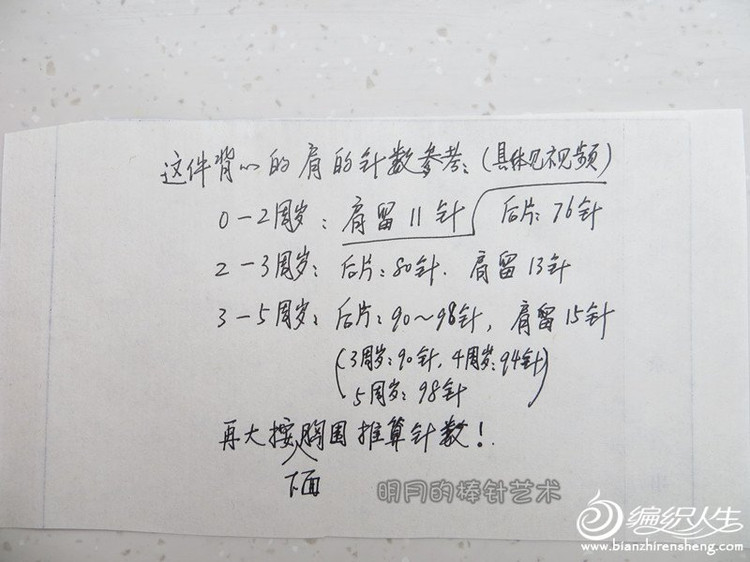 这件背心的肩的针数参考：(具体见视频)
0－2周岁：肩留11针 后片：76针
2－3周岁：后片：80针．肩留13针
3－5周岁：后片：90～98针，肩留15针
(3周岁：90针，4周岁：94针
5周岁：98针)
再大按胸围推算针数！．
下面
明月的棒针艺术
编织人生
www.bianzhirensheng.com